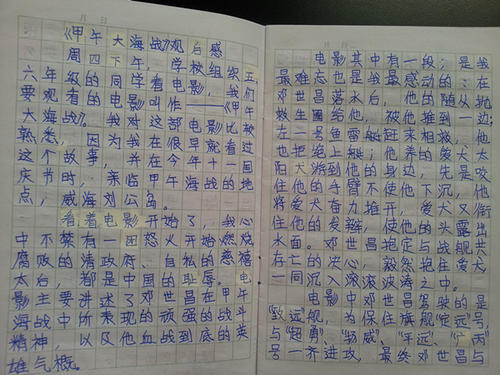 月 日
《甲午大海战》观后感
周四下午，学校组织五、
六年级的同学看电影，我们
要观看的电影叫作——《甲午
大海战》。我对这部电影比较
熟悉，因为我在很早就看过
这个故事，并在今年十一国
庆节时，亲临甲午海战的地
点，威海刘公岛。
看着电影开始了，我心
中不禁有一团怒火开始燃烧，
腐败的清政府、自私的慈禧
太后，都是中国的耻辱。电
影主要讲述了邓世昌在甲午
海战中所表现的顽强的战斗
精神，以及他血战到底的英
雄气概。
月 日
电影其中有一段；是我
最难忘也是我最感动的：在
邓世昌落水后，他的随从抛
救生圈给他，被他推到一边；
在一号鱼雷艇赶来相救，他
也拒绝上艇；他养的爱犬太
阳犬游到他的身边，先是咬
住他的手臂不使他下沉，他
将爱犬奋力推开，爱犬又衔
住他的发辫，使他的头露出
水面。邓世昌抱定与战舰共
存亡的决心，毅然抱住爱犬
一同沉入滚滚波涛之中。
电影中邓世昌驾驶的是
“致远”舰，为保住旗舰“定远”号，
与“超勇”、“扬威”、“平远”、“广丙”
号一齐进攻，最终邓世昌与